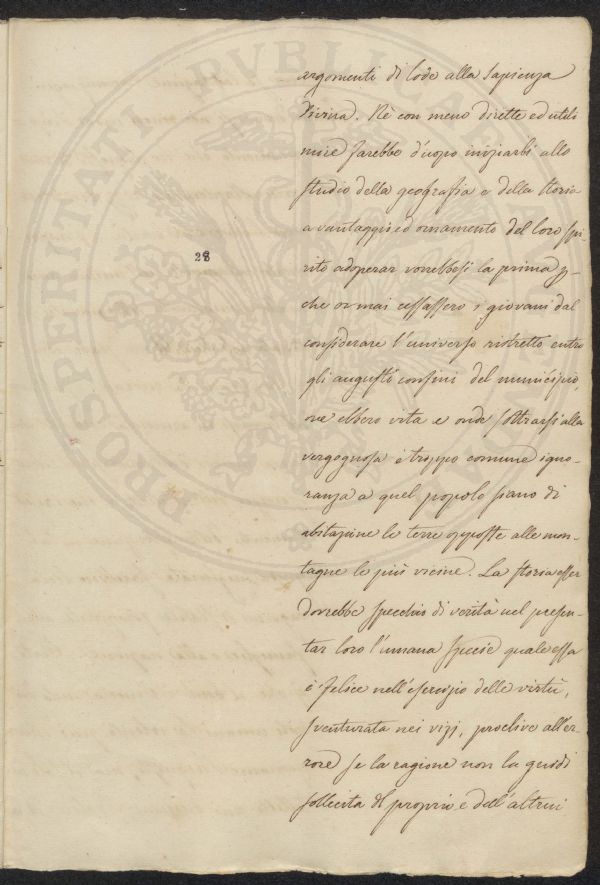 argomenti di lode alla Sapienza
Divina. Nè con meno dirette ed utili
mire farebbe d'uopo iniziarli allo
studio della geografia e della storia
a vantaggio ed ornamento del loro spi-
28
rito adoperar vorrebbesi la prima
che or mai cessassero i giovani dal
considerare l'universo ristretto entro
gli augusti confini del municipio,
ove ebbero vita e onde sottrarsi alla
vergognosa e troppo comune igno-
ranza a quel popolo siano di
abitazione le terre opposte alle mon-
tagne le più vicine. La storia esser
dovrebbe specchio di verità nel presen-
tar loro l'umana specie quale essa
è felice nell'esercizio delle virtù,
sventurata nei vizj, proclive all'er-
rore se la ragione non la guidi
sollecita del proprio e dell'altrui
PROSPERITATI PVBLICAE